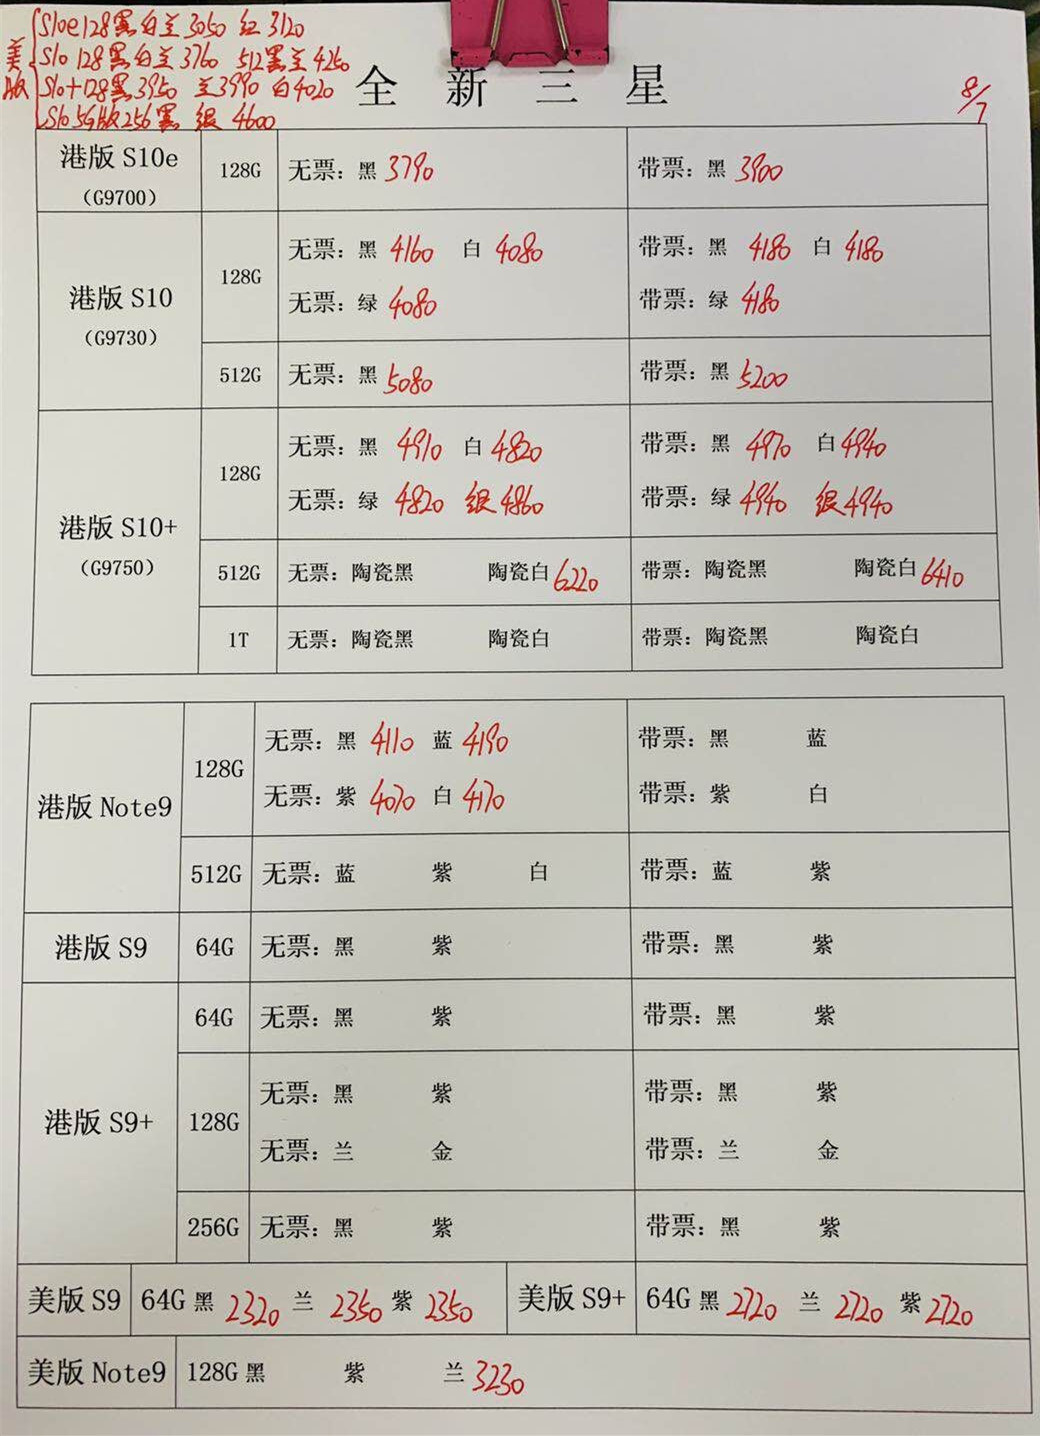 美版
S10e 128黑白兰3050 红3120
S10 128黑白兰3760 512黑兰4250
S10+128黑3950 兰3990 白4020
S10 5G版256黑 银 4600
全新三星
8/7
港版 S10e
(G9700)
128G
无票：黑 3790
带票：黑 3900
港版 S10
(G9730)
128G
无票：黑 4160 白 4080
带票：黑 4180 白 4180
无票：绿 4080
带票：绿 4180
512G
无票：黑 5080
带票：黑 5200
港版 S10+
(G9750)
128G
无票：黑 4910 白 4820
带票：黑 4970 白 4940
无票：绿 4820 银 4860
带票：绿 4940 银 4940
512G
无票：陶瓷黑 陶瓷白 6220
带票：陶瓷黑 陶瓷白 6410
1T
无票：陶瓷黑 陶瓷白
带票：陶瓷黑 陶瓷白
港版 Note9
128G
无票：黑 4110 蓝 4190
带票：黑 蓝
无票：紫 4070 白 4170
带票：紫 白
512G
无票：蓝 紫 白
带票：蓝 紫
港版 S9
64G
无票：黑 紫
带票：黑 紫
港版 S9+
64G
无票：黑 紫
带票：黑 紫
128G
无票：黑 紫
带票：黑 紫
无票：兰 金
带票：兰 金
256G
无票：黑 紫
带票：黑 紫
美版 S9
64G 黑 2320 兰 2350 紫 2350
美版 S9+
64G 黑 2720 兰 2720 紫 2720
美版 Note9
128G 黑 紫 兰 3230